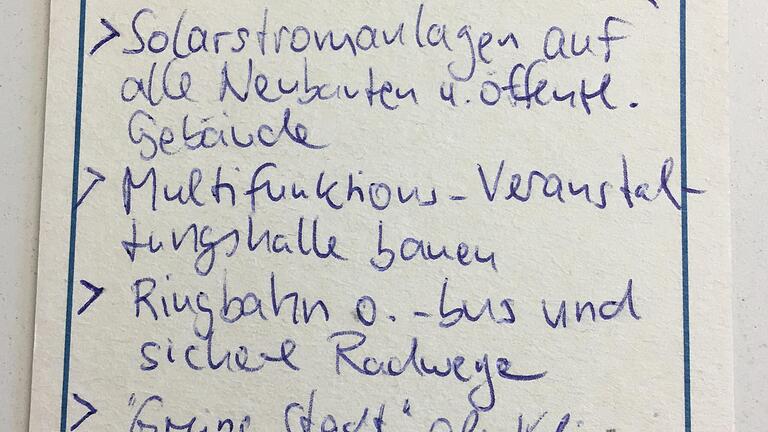 > Solarstromanlagen auf
alle Neubauten u. öffentl.
Gebäude
> Multifunktions-Veranstal-
tungshalle bauen
> Ringbahn o. -bus und
sichere Radwege
> "Grüne Stadt"